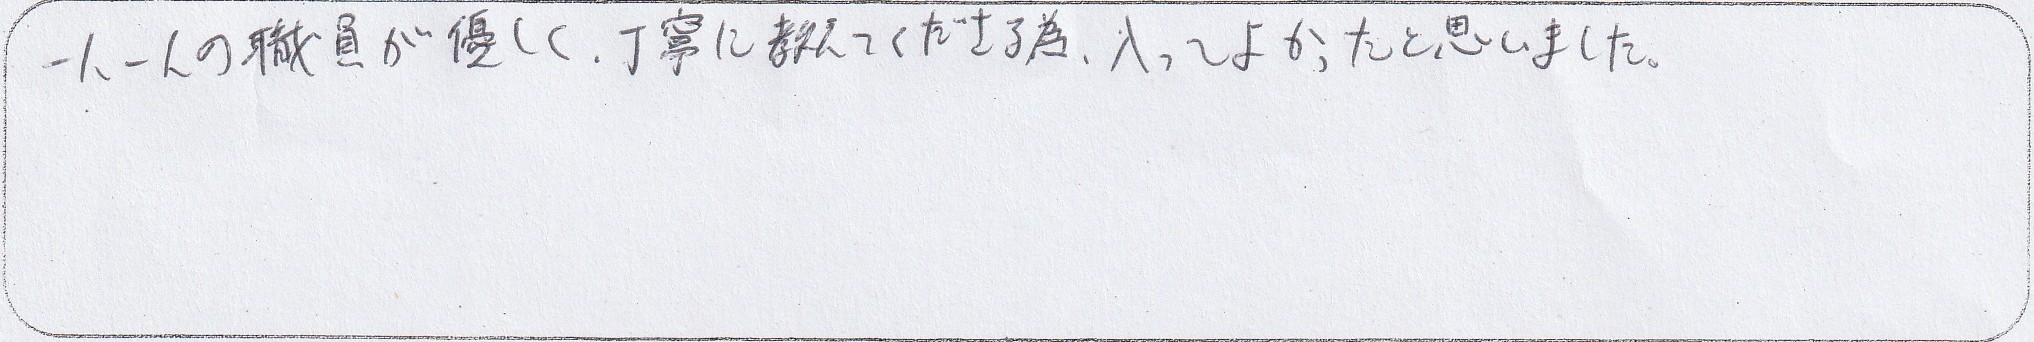 一人一人の職員が優しく、丁寧に教えてくださる為、入ってよかったと思いました。